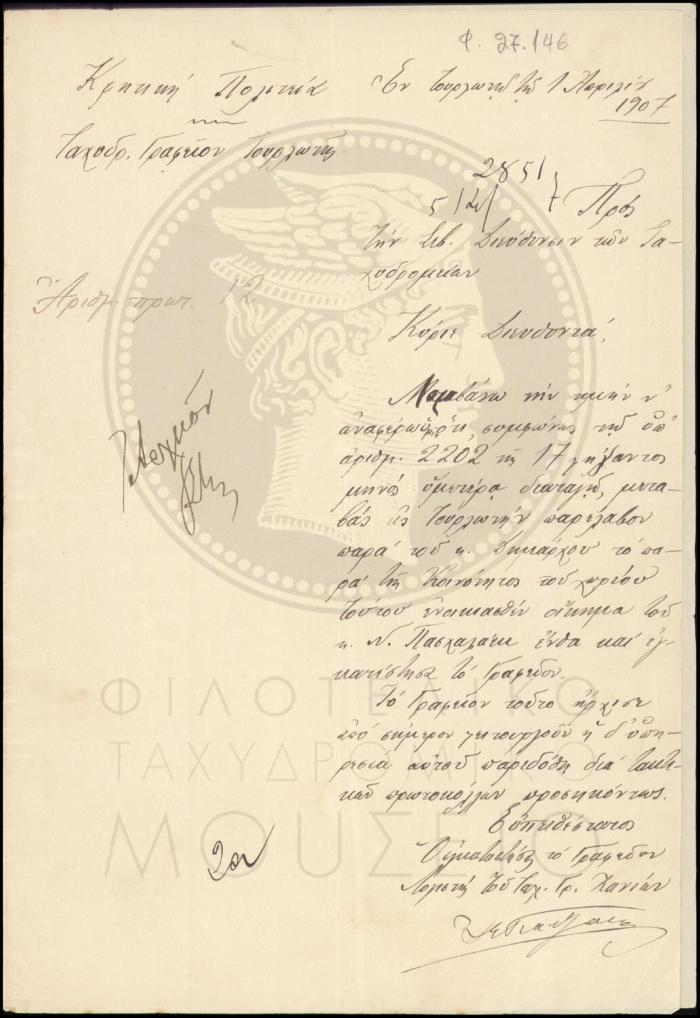 Φ. 27.146
Κρητική Πολιτεία
Ἐν Τουρλωτῇ τῇ 1 Ἀπριλίου
1907
Ταχυδρ. Γραφεῖον Τουρλωτῆς
2851
5/4/7
Πρὸς
τὴν Σεβ. Διεύθυνσιν τῶν Τα-
χυδρομείων
Ἀριθμ. πρωτ. 12
Κύριε Διευθυντά,
Λαμβάνω τὴν τιμὴν ν'
ἀναφέρω ὑμῖν ὅτι, συμφώνως τῇ ὑπ'
ἀριθμ. 2202 τῆς 17 λήξαντος
μηνὸς ὑμετέρᾳ διαταγῇ, μετα-
βὰς εἰς Τουρλωτὴν παρέλαβον
παρὰ τοῦ κ. Δημάρχου τὸ πα-
ρὰ τῆς Κοινότητος τοῦ χωρίου
τούτου ἐνοικιασθὲν οἴκημα τοῦ
κ. Ν. Πασχαλάκη ἔνθα καὶ ἐγ-
κατέστησα τὸ Γραφεῖον.
Τὸ Γραφεῖον τοῦτο ἤρχισε
ἀπὸ σήμερον λειτουργοῦν ἡ δ' ὑπη-
ρεσία αὐτοῦ παρεδόθη διὰ τακτι-
κῶν πρωτοκόλλων προσηκόντως.
Εὐπειθέστατος
Ὁ ἐγκαταστήσας τὸ Γραφεῖον
Λογιστὴς τοῦ Ταχ. Γρ. Χανίων
ΦΙΛΟΤΕΛΙΚΟ
ΤΑΧΥΔΡΟΜΙΚΟ
ΜΟΥΣΕΙΟ